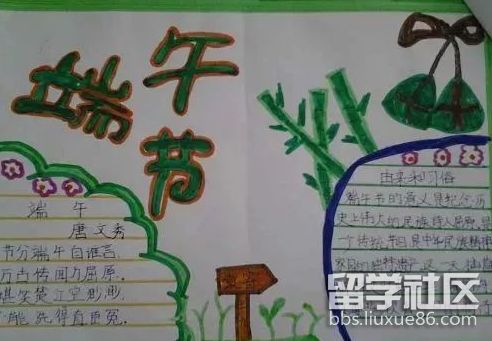 端午节
端 午
唐 文秀
节分端午自谁言,
万古传闻为屈原.
堪笑楚江空渺渺,
不能洗得直臣冤.
由来和习俗
端午节的意义是纪念历
史上伟大的民族诗人屈原,是
一个传统节日,是中华民族精神
家园的
这一天
留学社区
bbs.liuxue86.com